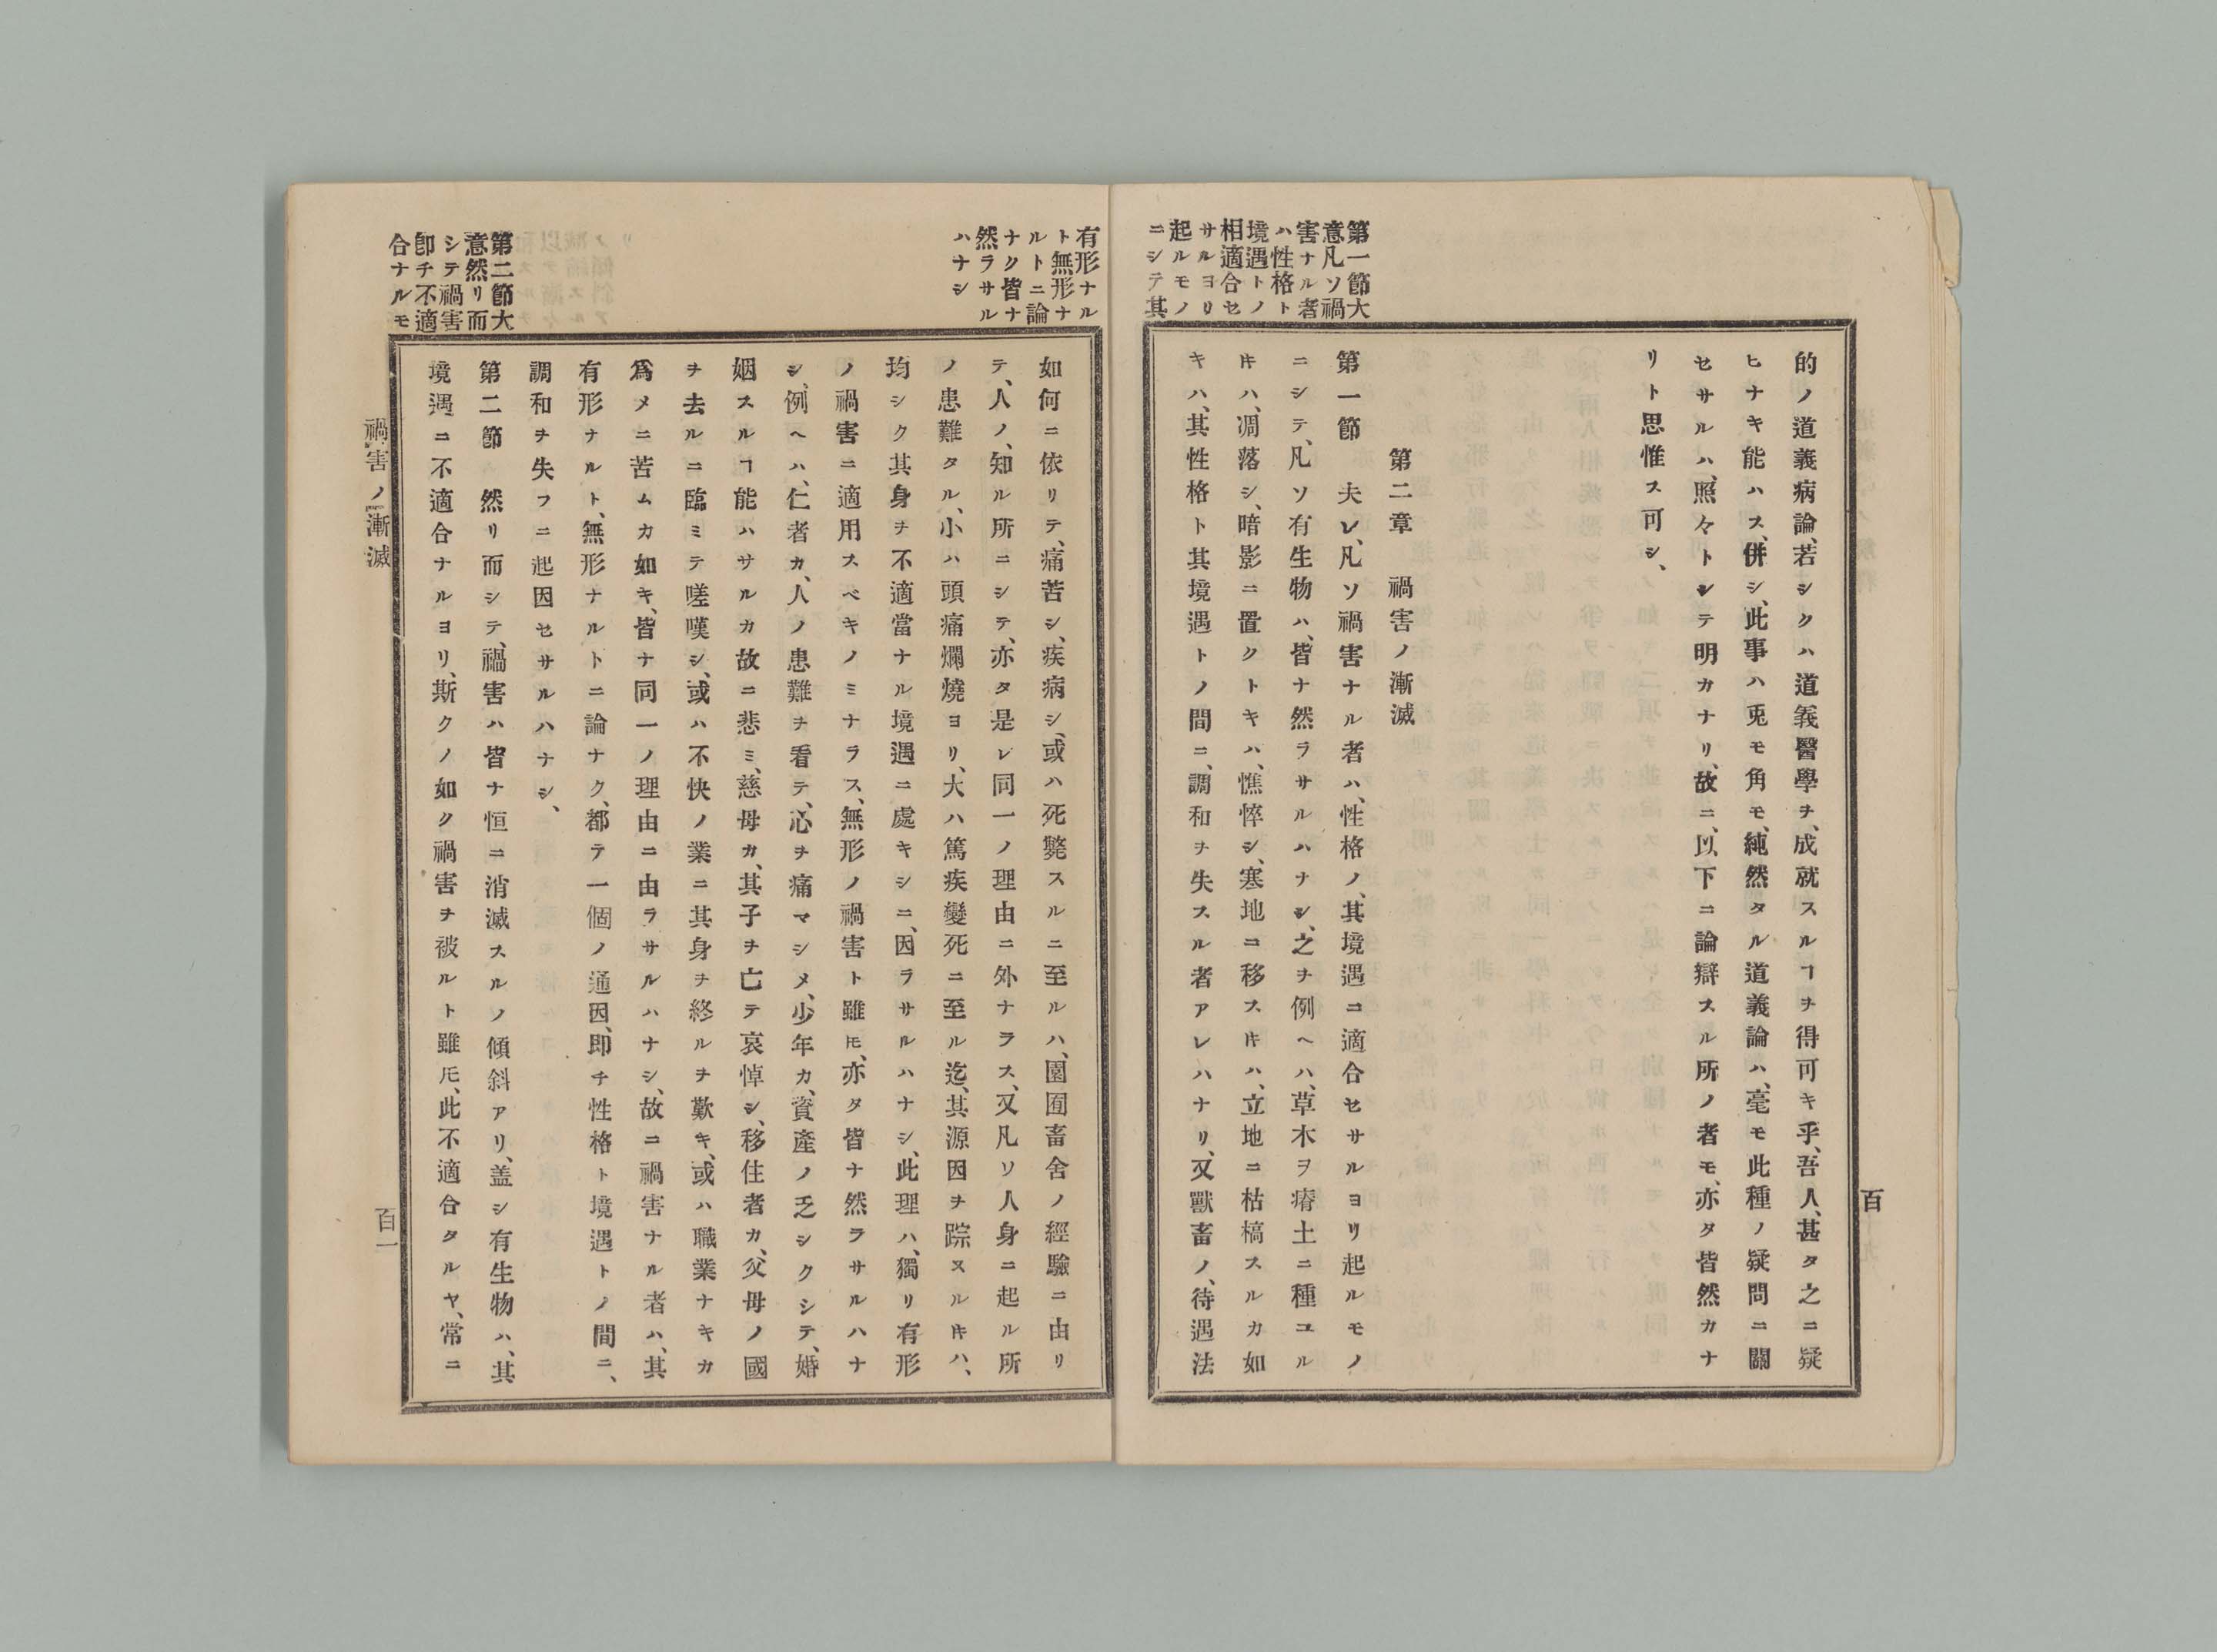 百
的ノ道義病論、若シクハ道義醫學ヲ、成就スルヿヲ得可キ乎、吾人、甚タ之ニ疑
ヒナキ能ハス、併シ、此事ハ兎モ角モ、純然タル道義論ハ、毫モ此種ノ疑問ニ關
セサルハ、照々トシテ明カナリ、故ニ、以下ニ論辯スル所ノ者モ、亦タ皆然カナ
リト思惟ス可シ、
第二章　禍害ノ漸滅
第一節大
意凡ソ禍
害ナル者
ハ性格ト
境遇トノ
相適合セ
サルヨリ
起ルモノ
ニシテ其
第一節　夫レ、凡ソ禍害ナル者ハ、性格ノ、其境遇ニ適合セサルヨリ起ルモノ
ニシテ、凡ソ有生物ハ、皆ナ然ラサルハナシ、之ヲ例ヘハ、草木ヲ瘠土ニ種ユル
𪜈ハ、凋落シ、暗影ニ置クトキハ、憔悴シ、寒地ニ移ス𪜈ハ、立地ニ枯槁スルカ如
キハ、其性格ト其境遇トノ間ニ、調和ヲ失スル者アレハナリ、又獸畜ノ、待遇法
有形ナル
ト無形ナ
ルトニ論
ナク皆ナ
然ラサル
ハナシ
如何ニ依リテ、痛苦シ、疾病シ、或ハ死斃スルニ至ルハ、園囿畜舍ノ經驗ニ由リ
テ、人ノ、知ル所ニシテ、亦タ是レ同一ノ理由ニ外ナラス、又凡ソ人身ニ起ル所
ノ患難タル、小ハ頭痛爛燒ヨリ、大ハ篤疾變死ニ至ル迄、其源因ヲ踪ヌル𪜈ハ、
均シク其身ヲ不適當ナル境遇ニ處キシニ、因ラサルハナシ、此理ハ、獨リ有形
ノ禍害ニ適用スベキノミナラス、無形ノ禍害ト雖𪜈、亦タ皆ナ然ラサルハナ
シ、例ヘハ、仁者カ、人ノ患難ヲ看テ、心ヲ痛マシメ、少年カ、資產ノ乏シクシテ、婚
姻スルヿ能ハサルカ故ニ悲ミ、慈母カ、其子ヲ亡テ哀悼シ、移住者カ、父母ノ國
ヲ去ルニ臨ミテ嗟嘆シ、或ハ不快ノ業ニ其身ヲ終ルヲ歎キ、或ハ職業ナキカ
爲メニ苦ムカ如キ、皆ナ同一ノ理由ニ由ラサルハナシ、故ニ禍害ナル者ハ、其
有形ナルト、無形ナルトニ論ナク、都テ一個ノ通因、即チ性格ト境遇トノ間ニ、
調和ヲ失フニ起因セサルハナシ、
第二節大
意然リ而
シテ禍害
卽チ不適
合ナルモ
第二節　然リ而シテ、禍害ハ皆ナ恒ニ消滅スルノ傾斜アリ、盖シ有生物ハ、其
境遇ニ不適合ナルヨリ、斯クノ如ク禍害ヲ被ルト雖𪜈、此不適合タルヤ、常ニ
禍害ノ漸滅
百一